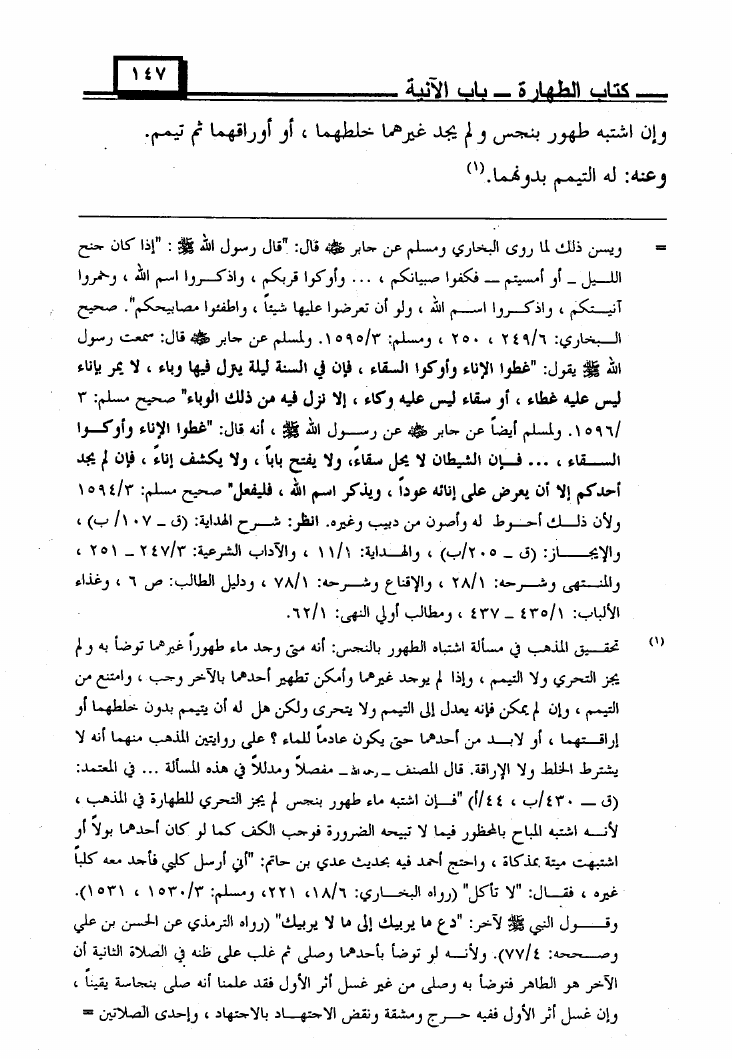 ١٤٧
ــــ كتاب الطهارة ــ باب الآنية ــــ
وإن اشتبه طهور بنجس ولم يجد غيرهما خلطهما ، أو أوراقهما ثم تيمم.
وعنه: له التيمم بدونهما.(١)
= ويسن ذلك لما روى البخاري ومسلم عن جابر ﷺ قال: "قال رسول الله ﷺ : "إذا كان جنح
الليـل ـ أو أمسيتم ــ فكفوا صبيانكم ، ... وأوكوا قربكم ، واذكـروا اسم الله ، وخمروا
آنيـتكم ، واذكـروا اسـم الله ، ولو أن تعرضوا عليها شيئاً ، واطفئوا مصابيحكم". صحيح
البـخاري: ٢٤٩/٦ ، ٢٥٠ ، ومسلم: ١٥٩٥/٣. ولمسلم عن جابر ﷺ قال: سمعت رسول
الله ﷺ يقول: "غطوا الإناء وأوكوا السقاء ، فإن في السنة ليلة ينزل فيها وباء ، لا يمر بإناء
ليس عليه غطاء ، أو سقاء ليس عليه وكاء ، إلا نزل فيه من ذلك الوباء" صحيح مسلم: ٣
/١٥٩٦. ولمسلم أيضاً عن جابر ﷺ عن رسـول الله ﷺ ، أنه قال: "غطوا الإناء وأوكـوا
السـقاء ، ... فـإن الشيطان لا يحل سقاءً، ولا يفتح باباً ، ولا يكشف إناءً ، فإن لم يجد
أحدكم إلا أن يعرض على إنائه عوداً ، ويذكر اسم الله ، فليفعل" صحيح مسلم: ١٥٩٤/٣
ولأن ذلـك أحـوط له وأصون من دبيب وغيره. انظر: شـرح الهداية: (ق ــ ١٠٧/ ب) ،
والإيجـاز: (ق ــ ٢٠٥/ب) ، والهـداية: ١١/١ ، والآداب الشرعية: ٢٤٧/٣ ــ ٢٥١ ،
والمنـتهى وشـرحه: ٢٨/١ ، والإقناع وشـرحه: ٧٨/١ ، ودليل الطالب: ص ٦ ، وغذاء
الألباب: ٤٣٥/١ ــ ٤٣٧ ، ومطالب أولي النهى: ٦٢/١.
(١) تحقـيق المذهب في مسألة اشتباه الطهور بالنجس: أنه متى وجد ماء طهوراً غيرهما توضأ به ولم
يجز التحري ولا التيمم ، وإذا لم يوجد غيرهما وأمكن تطهير أحدهما بالآخر وجب ، وامتنع من
التيمم ، وإن لم يمكن فإنه يعدل إلى التيمم ولا يتحرى ولكن هل له أن يتيمم بدون خلطهما أو
إراقـتهما ، أو لابـد من أحدهما حتى يكون عادماً للماء ؟ على روايتين المذهب منهما أنه لا
يشترط الخلط ولا الإراقة. قال المصنف ــ رحمه الله ــ مفصلاً ومدللاً في هذه المسألة ... في المعتمد:
(ق ــ ٤٣٠/ب ، ٤٤/أ) "فـإن اشتبه ماء طهور بنجس لم يجز التحري للطهارة في المذهب ،
لأنـه اشتبه المباح بالمحظور فيما لا تبيحه الضرورة فوجب الكف كما لو كان أحدهما بولاً أو
اشتبهت ميتة بمذكاة ، واحتج أحمد فيه بحديث عدي بن حاتم: "أني أرسل كلبي فأجد معه كلباً
غيره ، فقـال: "لا تأكل" (رواه البخـاري: ١٨/٦، ٢٢١، ومسلم: ١٥٣٠/٣ ، ١٥٣١).
وقـول النبي ﷺ لآخر: "دع ما يريبك إلى ما لا يريبك" (رواه الترمذي عن الحسن بن علي
وصـححه: ٧٧/٤). ولأنـه لو توضأ بأحدهما وصلى ثم غلب على ظنه في الصلاة الثانية أن
الآخر هو الطاهر فتوضأ به وصلى من غير غسل أثر الأول فقد علمنا أنه صلى بنجاسة يقيناً ،
وإن غسل أثر الأول ففيه حـرج ومشقة ونقض الاجتهـاد بالاجتهاد ، وإحدى الصلاتين =